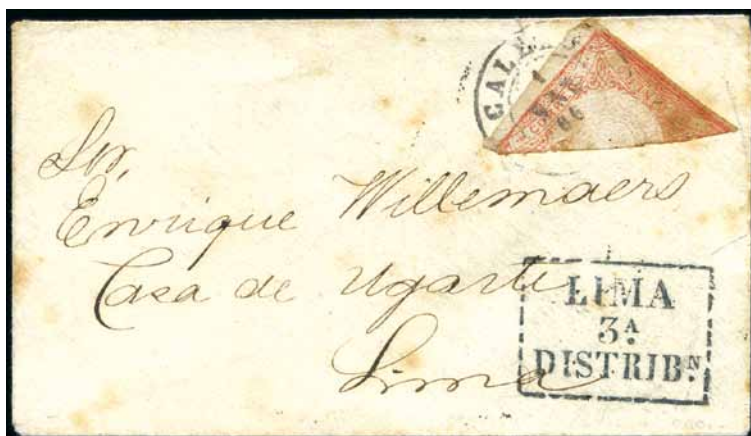 CALL
1
MAR
66
Sor.
Enrique Willemaers
Casa de Ugarte
Lima
LIMA
3A
DISTRIBN.